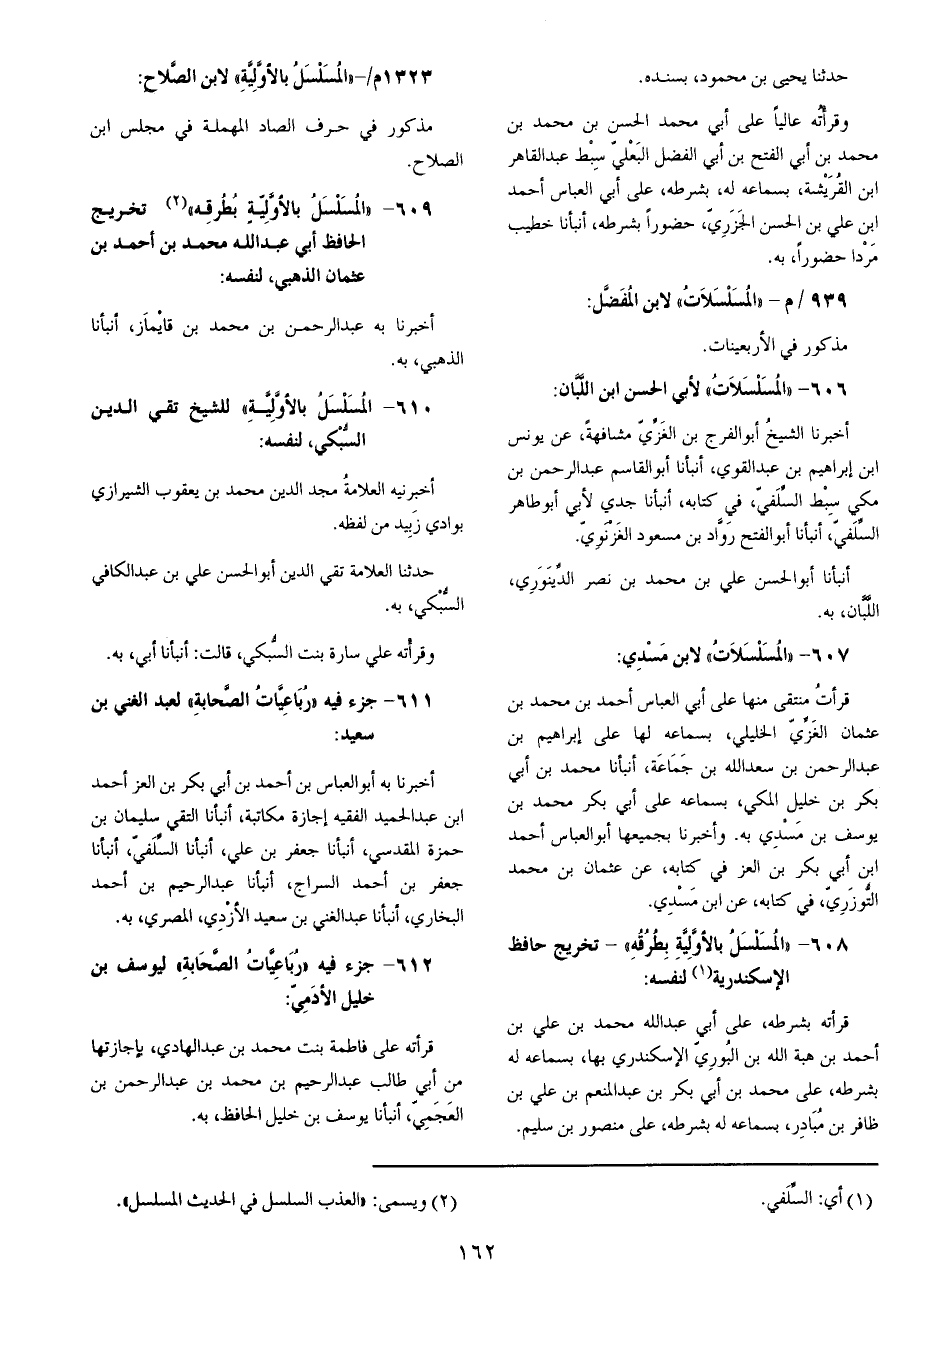 حدثنا يحيى بن محمود، بسنده.
وقرأتُه عالياً على أبي محمد الحسن بن محمد بن
محمد بن أبي الفتح بن أبي الفضل البَعْليّ سِبْط عبدالقاهر
ابن القُرَيْشة، بسماعه له، بشرطه، على أبي العباس أحمد
ابن علي بن الحسن الجَزَريّ، حضوراً بشرطه، أنبأنا خطيب
مَرْدا حضوراً، به.
٩٣٩ / م - «المُسَلْسَلَاتُ» لابن المُفَضَّل:
مذكور في الأربعينات.
٦٠٦- «المُسَلْسَلاَتُ» لأبي الحسن ابن اللَّبَّان:
أخبرنا الشيخُ أبوالفرج بن الغَزِّيّ مشافهةً، عن يونس
ابن إبراهيم بن عبدالقوي، أنبأنا أبوالقاسم عبدالرحمن بن
مكي سِبْط السِّلَفيّ، في كتابه، أنبأنا جدي لأبي أبوطاهر
السِّلَفيّ، أنبأنا أبوالفتح رَوَّاد بن مسعود الغَزْنَوِيّ.
أنبأنا أبوالحسن علي بن محمد بن نصر الدِّينَوَرِي،
اللَّبَّان، به.
٦٠٧- «المُسَلْسَلَاتُ» لابن مَسْدِي:
قرأتُ منتقى منها على أبي العباس أحمد بن محمد بن
عثمان الغَزِّيّ الخليلي، بسماعه لها على إبراهيم بن
عبدالرحمن بن سعدالله بن جَمَاعَة، أنبأنا محمد بن أبي
بكر بن خليل المكي، بسماعه على أبي بكر محمد بن
يوسف بن مَسْدِي به. وأخبرنا بجميعها أبوالعباس أحمد
ابن أبي بكر بن العز في كتابه، عن عثمان بن محمد
التُّوزَرِيّ، في كتابه، عن ابن مَسْدِي.
٦٠٨- «المُسَلْسَلُ بالأوَّليَّةِ بِطُرُقُه» - تخريج حافظ
الإسكندرية(١) لنفسه:
قرأته بشرطه، على أبي عبدالله محمد بن علي بن
أحمد بن هبة الله بن البُوريّ الإسكندري بها، بسماعه له
بشرطه، على محمد بن أبي بكر بن عبدالمنعم بن علي بن
ظافر بن مُبَادِر، بسماعه له بشرطه، على منصور بن سليم.
١٣٢٣م/-«المُسَلْسَلُ بالأوَّليَّةِ» لابن الصَّلاح:
مذكور في حرف الصاد المهملة في مجلس ابن
الصلاح.
٦٠٩- «المُسَلْسَلُ بالأوَّليَّةِ بُطُرقِه»(٢) تخريج
الحافظ أبي عبدالله محمد بن أحمد بن
عثمان الذهبي، لنفسه:
أخبرنا به عبدالرحمن بن محمد بن قايْماَز، أنبأنا
الذهبي، به.
٦١٠- المُسَلْسَلُ بالأوَّليَّةِ» للشيخ تقي الدين
السُّبْكي، لنفسه:
أخبرنيه العلامةُ مجد الدين محمد بن يعقوب الشيرازي
بوادي زَبِيد من لفظه.
حدثنا العلامة تقي الدين أبوالحسن علي بن عبدالكافي
السُّبْكي، به.
وقرأته علي سارة بنت السُّبكي، قالت: أنبأنا أبي، به.
٦١١- جزء فيه «رُبَاعِيَّاتُ الصَّحابةِ» لعبد الغني بن
سعيد:
أخبرنا به أبوالعباس بن أحمد بن أبي بكر بن العز أحمد
ابن عبدالحميد الفقيه إجازة مكاتبة، أنبأنا التقي سليمان بن
حمزة المقدسي، أنبأنا جعفر بن علي، أنبأنا السِّلَفيّ، أنبأنا
جعفر بن أحمد السراج، أنبأنا عبدالرحيم بن أحمد
البخاري، أنبأنا عبدالغني بن سعيد الأزْدِي، المصري، به.
٦١٢- جزء فيه «رُبَاعِيَّاتُ الصَّحَابَةِ» ليوسف بن
خليل الأدَمِيّ:
قرأته على فاطمة بنت محمد بن عبدالهادي، بإجازتها
من أبي طالب عبدالرحيم بن محمد بن عبدالرحمن بن
العَجَمِيّ، أنبأنا يوسف بن خليل الحافظ، به.
(١) أي: السِّلَفي.
(٢) ويسمى: «العذب السلسل في الحديث المسلسل».
١٦٢